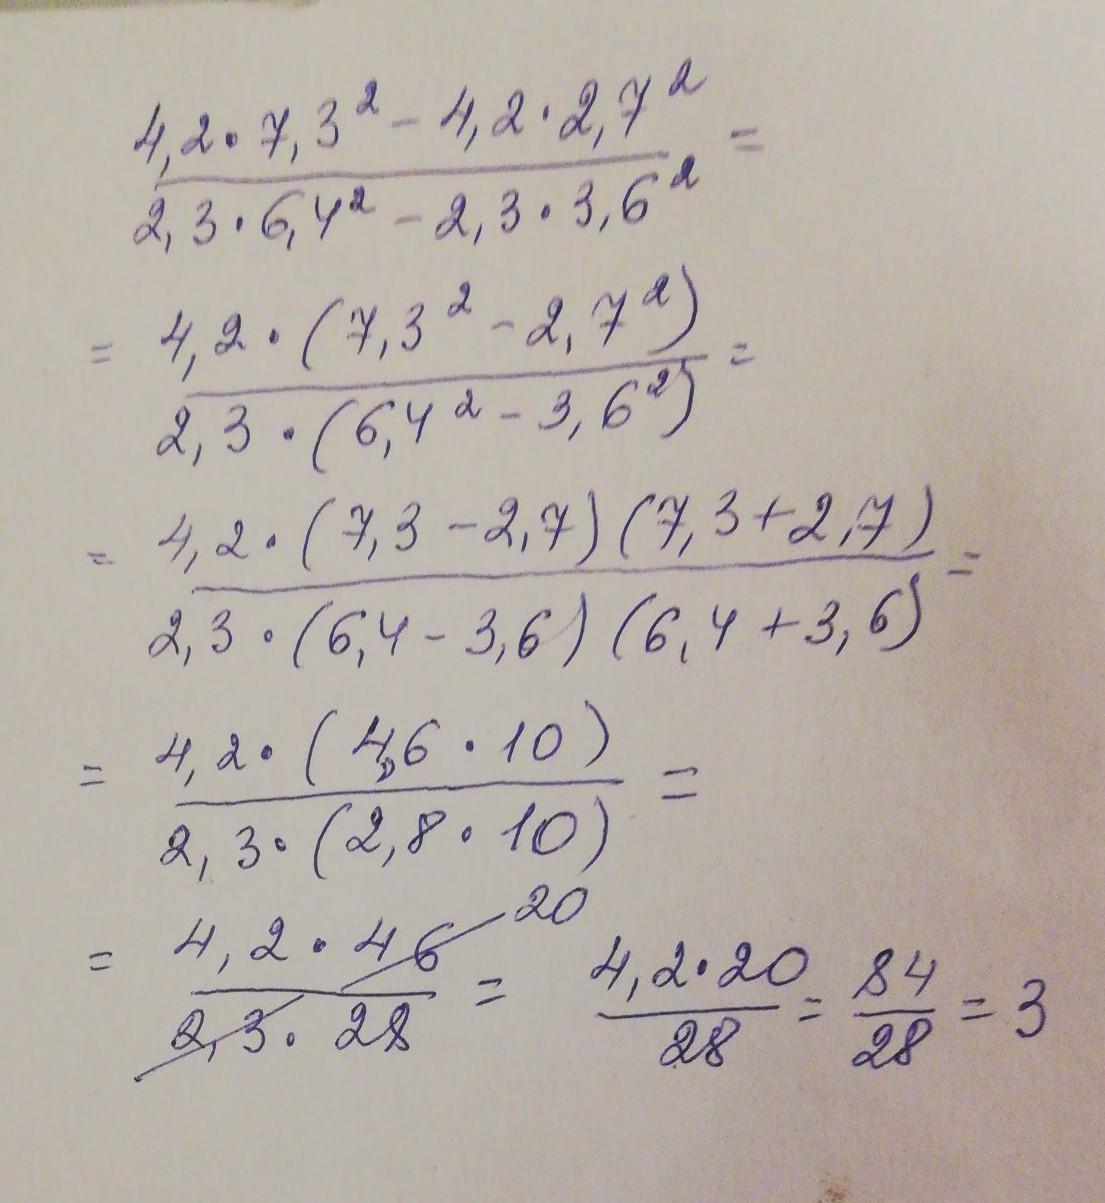 (4,2·7,3² − 4,2·2,7²)/(2,3·6,4² − 2,3·3,6²) =
= (4,2·(7,3² − 2,7²))/(2,3·(6,4² − 3,6²)) =
= (4,2·(7,3 − 2,7)(7,3 + 2,7))/(2,3·(6,4 − 3,6)(6,4 + 3,6)) =
= (4,2·(4,6·10))/(2,3·(2,8·10)) =
= (4,2·46 20)/(2,3·28) = (4,2·20)/28 = 84/28 = 3